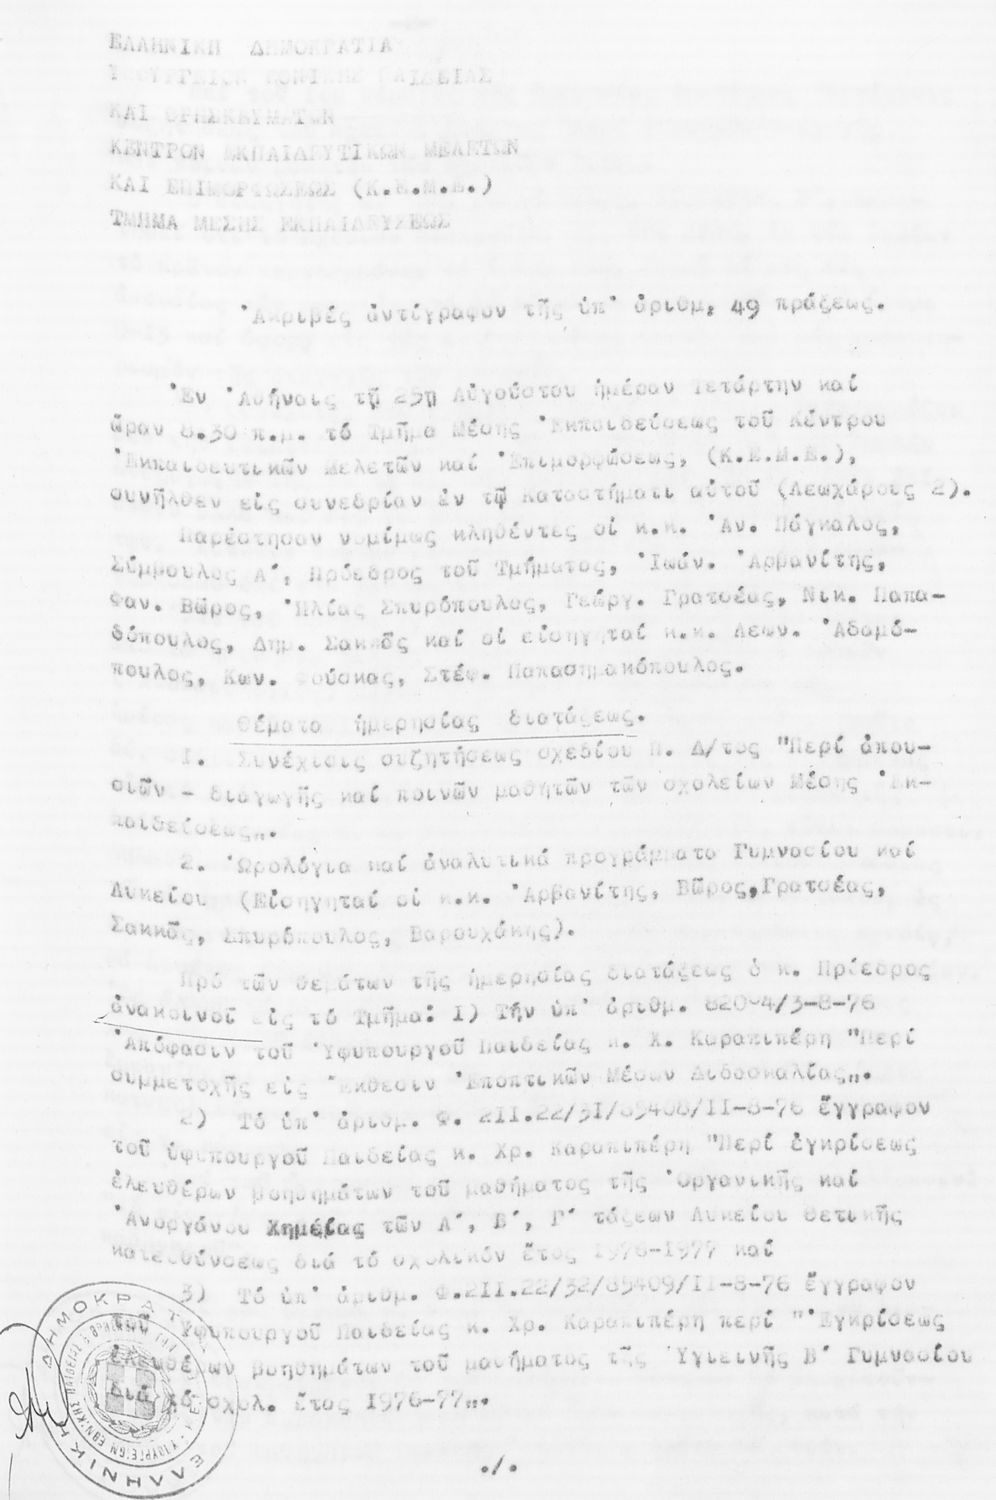 ΕΛΛΗΝΙΚΗ ΔΗΜΟΚΡΑΤΙΑ
ΥΠΟΥΡΓΕΙΟΝ ΕΘΝΙΚΗΣ ΠΑΙΔΕΙΑΣ
ΚΑΙ ΘΡΗΣΚΕΥΜΑΤΩΝ
ΚΕΝΤΡΟΝ ΕΚΠΑΙΔΕΥΤΙΚΩΝ ΜΕΛΕΤΩΝ
ΚΑΙ ΕΠΙΜΟΡΦΩΣΕΩΣ (Κ.Ε.Μ.Ε.)
ΤΜΗΜΑ ΜΕΣΗΣ ΕΚΠΑΙΔΕΥΣΕΩΣ
Ἀκριβές ἀντίγραφον τῆς ὑπ' ἀριθμ. 49 πράξεως.
Ἐν Ἀθήναις τῇ 25ῃ Αὐγούστου ἡμέραν Τετάρτην καί
ὥραν 8.30 π.μ. τό Τμῆμα Μέσης Ἐκπαιδεύσεως τοῦ Κέντρου
Ἐκπαιδευτικῶν Μελετῶν καί Ἐπιμορφώσεως, (Κ.Ε.Μ.Ε.),
συνῆλθεν εἰς συνεδρίαν ἐν τῷ Καταστήματι αὐτοῦ (Λεωχάρους 2).
Παρέστησαν νομίμως κληθέντες οἱ κ.κ. Ἀν. Πάγκαλος,
Σύμβουλος Α', Πρόεδρος τοῦ Τμήματος, Ἰωάν. Ἀρβανίτης,
Φαν. Βῶρος, Ἠλίας Σπυρόπουλος, Γεώργ. Γρατσέας, Νικ. Παπα-
δόπουλος, Δημ. Σακκᾶς καί οἱ εἰσηγηταί κ.κ. Λεων. Ἀδαμό-
πουλος, Κων. Φούσκας, Στέφ. Παπασημακόπουλος.
Θέματα ἡμερησίας διατάξεως.
1. Συνέχισις συζητήσεως σχεδίου Π. Δ/τος "Περί ἀπου-
σιῶν - διαγωγῆς καί ποινῶν μαθητῶν τῶν σχολείων Μέσης Ἐκ-
παιδεύσεως„.
2. Ὡρολόγια καί ἀναλυτικά προγράμματα Γυμνασίου καί
Λυκείου (Εἰσηγηταί οἱ κ.κ. Ἀρβανίτης, Βῶρος, Γρατσέας,
Σακκᾶς, Σπυρόπουλος, Βαρουχάκης).
Πρό τῶν θεμάτων τῆς ἡμερησίας διατάξεως ὁ κ. Πρόεδρος
ἀνακοινοῖ εἰς τό Τμῆμα: 1) Τήν ὑπ' ἀριθμ.
Ἀπόφασιν τοῦ Ὑφυπουργοῦ Παιδείας κ. Χ. Καραπιπέρη "Περί
συμμετοχῆς εἰς Ἔκθεσιν Ἐποπτικῶν Μέσων Διδασκαλίας„.
2) Τό ὑπ' ἀριθμ. Φ. 211.22/31/85408/11-8-76 ἔγγραφον
τοῦ ὑφυπουργοῦ Παιδείας κ. Χρ. Καραπιπέρη "Περί ἐγκρίσεως
ἐλευθέρων βοηθημάτων τοῦ μαθήματος τῆς Ὀργανικῆς καί
Ἀνοργάνου Χημείας τῶν Α', Β', Γ' τάξεων Λυκείου Θετικῆς
κατευθύνσεως διά τό σχολικόν ἔτος 1976-1977 καί
3) Τό ὑπ' ἀριθμ. Φ.211.22/32/85409/11-8-76 ἔγγραφον
τοῦ Ὑφυπουργοῦ Παιδείας κ. Χρ. Καραπιπέρη περί "Ἐγκρίσεως
ἐλευθέρων βοηθημάτων τοῦ μαθήματος τῆς Ὑγιεινῆς Β' Γυμνασίου
διά τό σχολ. ἔτος 1976-77„.
./.
ΕΛΛΗΝΙΚΗ ΔΗΜΟΚΡΑΤΙΑ